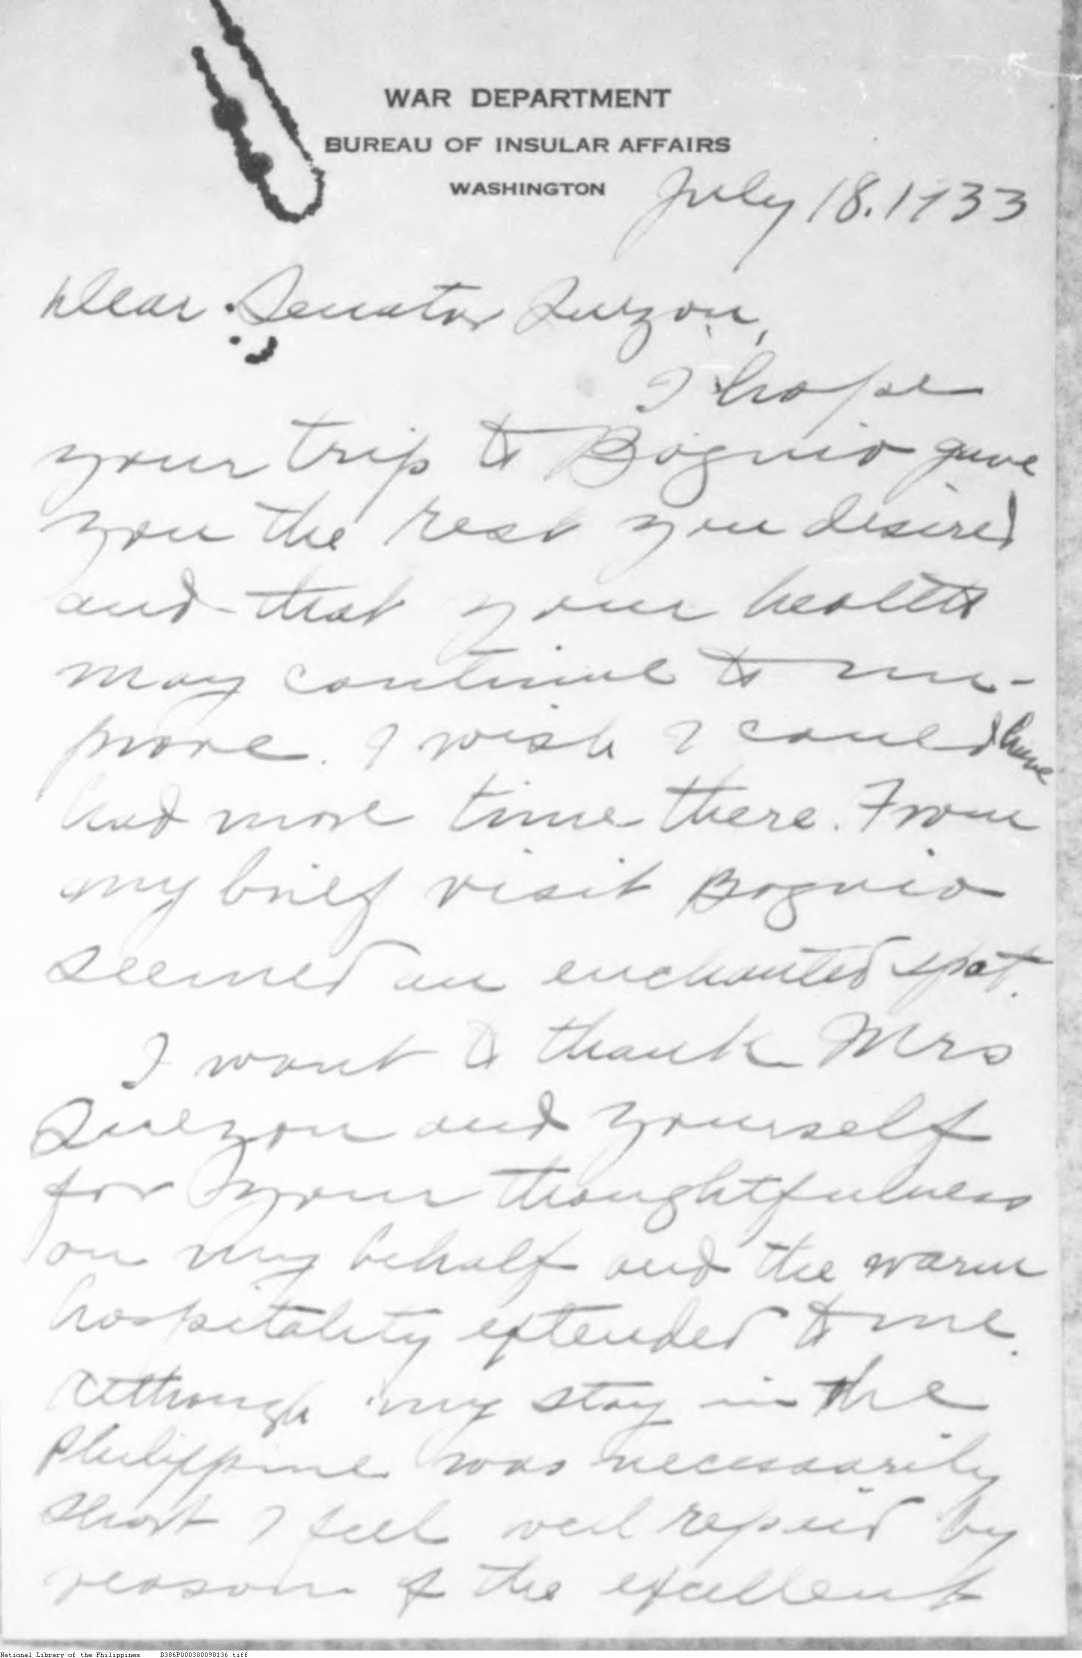 WAR DEPARTMENT
BUREAU OF INSULAR AFFAIRS
WASHINGTON
July 18. 1933
Dear Senator Quezon,
I hope
your trip to Boguio gave
you the rest you desired
and that your health
may continue to im-
prove. I wish I could have
had more time there. From
my brief visit Boguio
seemed an enchanted spot.
I want to thank Mrs
Quezon and yourself
for your thoughtfulness
on my behalf and the warm
hospitality extended to me.
Although my stay in the
Philippine was necessarily
short I feel well repaid by
reason of the excellent
National Library of the Philippines D386P000300090136.tiff